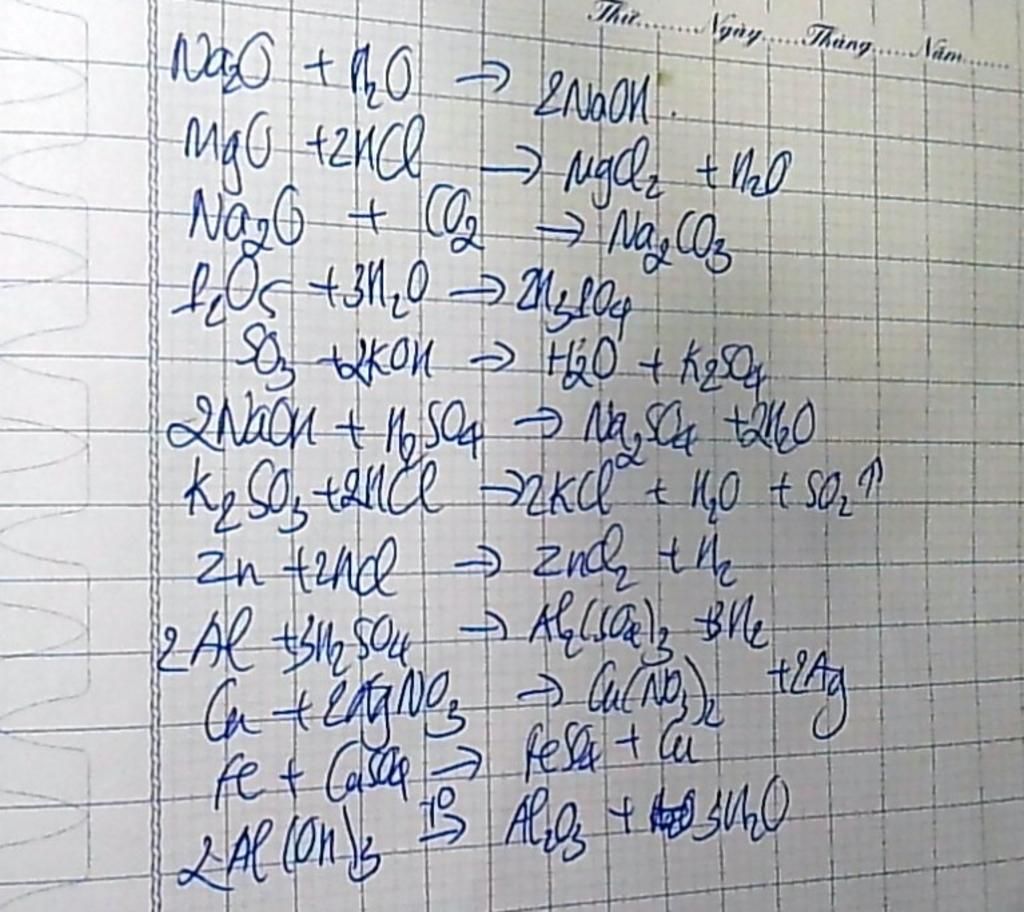 Thứ........Ngày......Tháng......Năm........
Na₂O + H₂O → 2NaOH.
MgO + 2HCl → MgCl₂ + H₂O
Na₂O + CO₂ → Na₂CO₃
P₂O₅ + 3H₂O → 2H₃PO₄
SO₃ + 2KOH → H₂O + K₂SO₄
2NaOH + H₂SO₄ → Na₂SO₄ + 2H₂O
K₂SO₃ + 2HCl → 2KCl + H₂O + SO₂↑
Zn + 2HCl → ZnCl₂ + H₂
2Al + 3H₂SO₄ → Al₂(SO₄)₃ + 3H₂
Cu + 2AgNO₃ → Cu(NO₃)₂ + 2Ag
Fe + CuSO₄ → FeSO₄ + Cu
2Al(OH)₃ →(t°) Al₂O₃ + 3H₂O